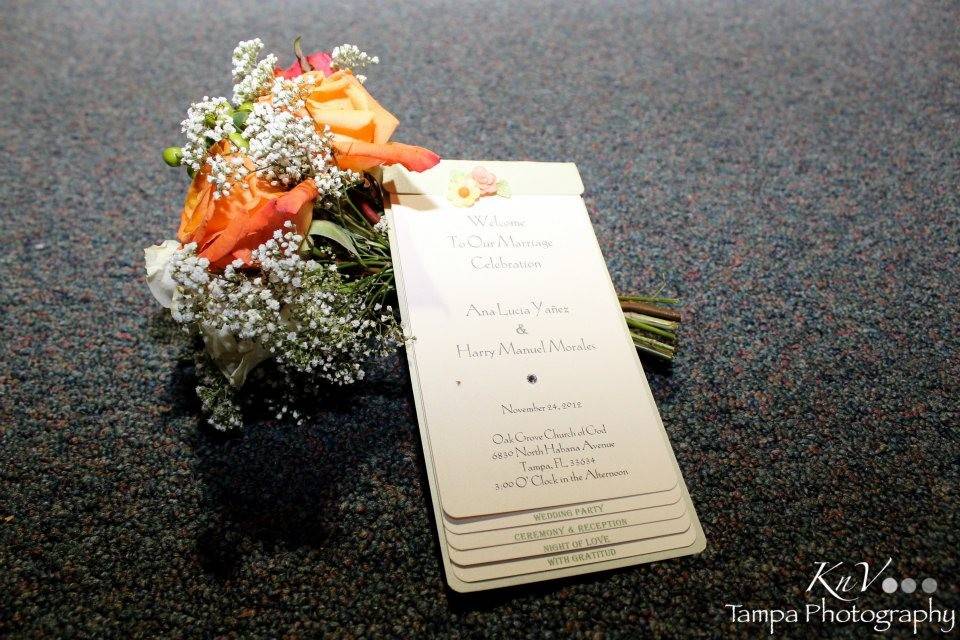 Welcome
To Our Marriage
Celebration
Ana Lucia Yañez
&
Harry Manuel Morales
November 24, 2012
Oak Grove Church of God
6830 North Habana Avenue
Tampa, FL, 33634
3:00 O' Clock in the Afternoon
WEDDING PARTY
CEREMONY & RECEPTION
NIGHT OF LOVE
WITH GRATITUD
KnV
Tampa Photography